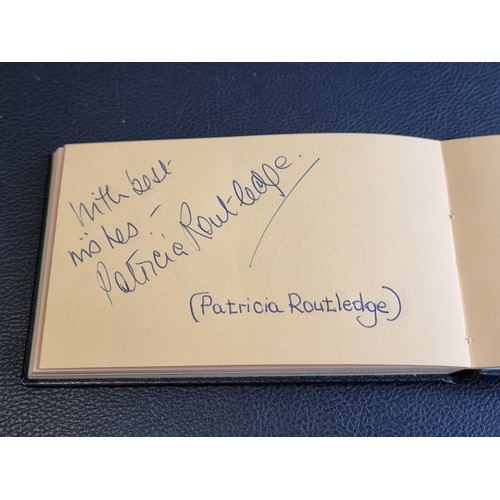 With best
wishes -
Patricia Routledge.
(Patricia Routledge)